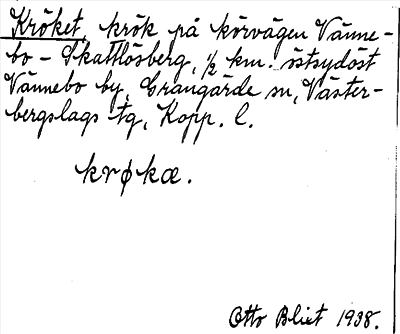 Kröket, krök på körvägen Vänne-
bo - Skattlösberg, ½ km. östsydöst
Vännebo by, Grangärde sn, Väster-
bergslags tg, Kopp. l.
krøkæ.
Otto Blixt 1938.